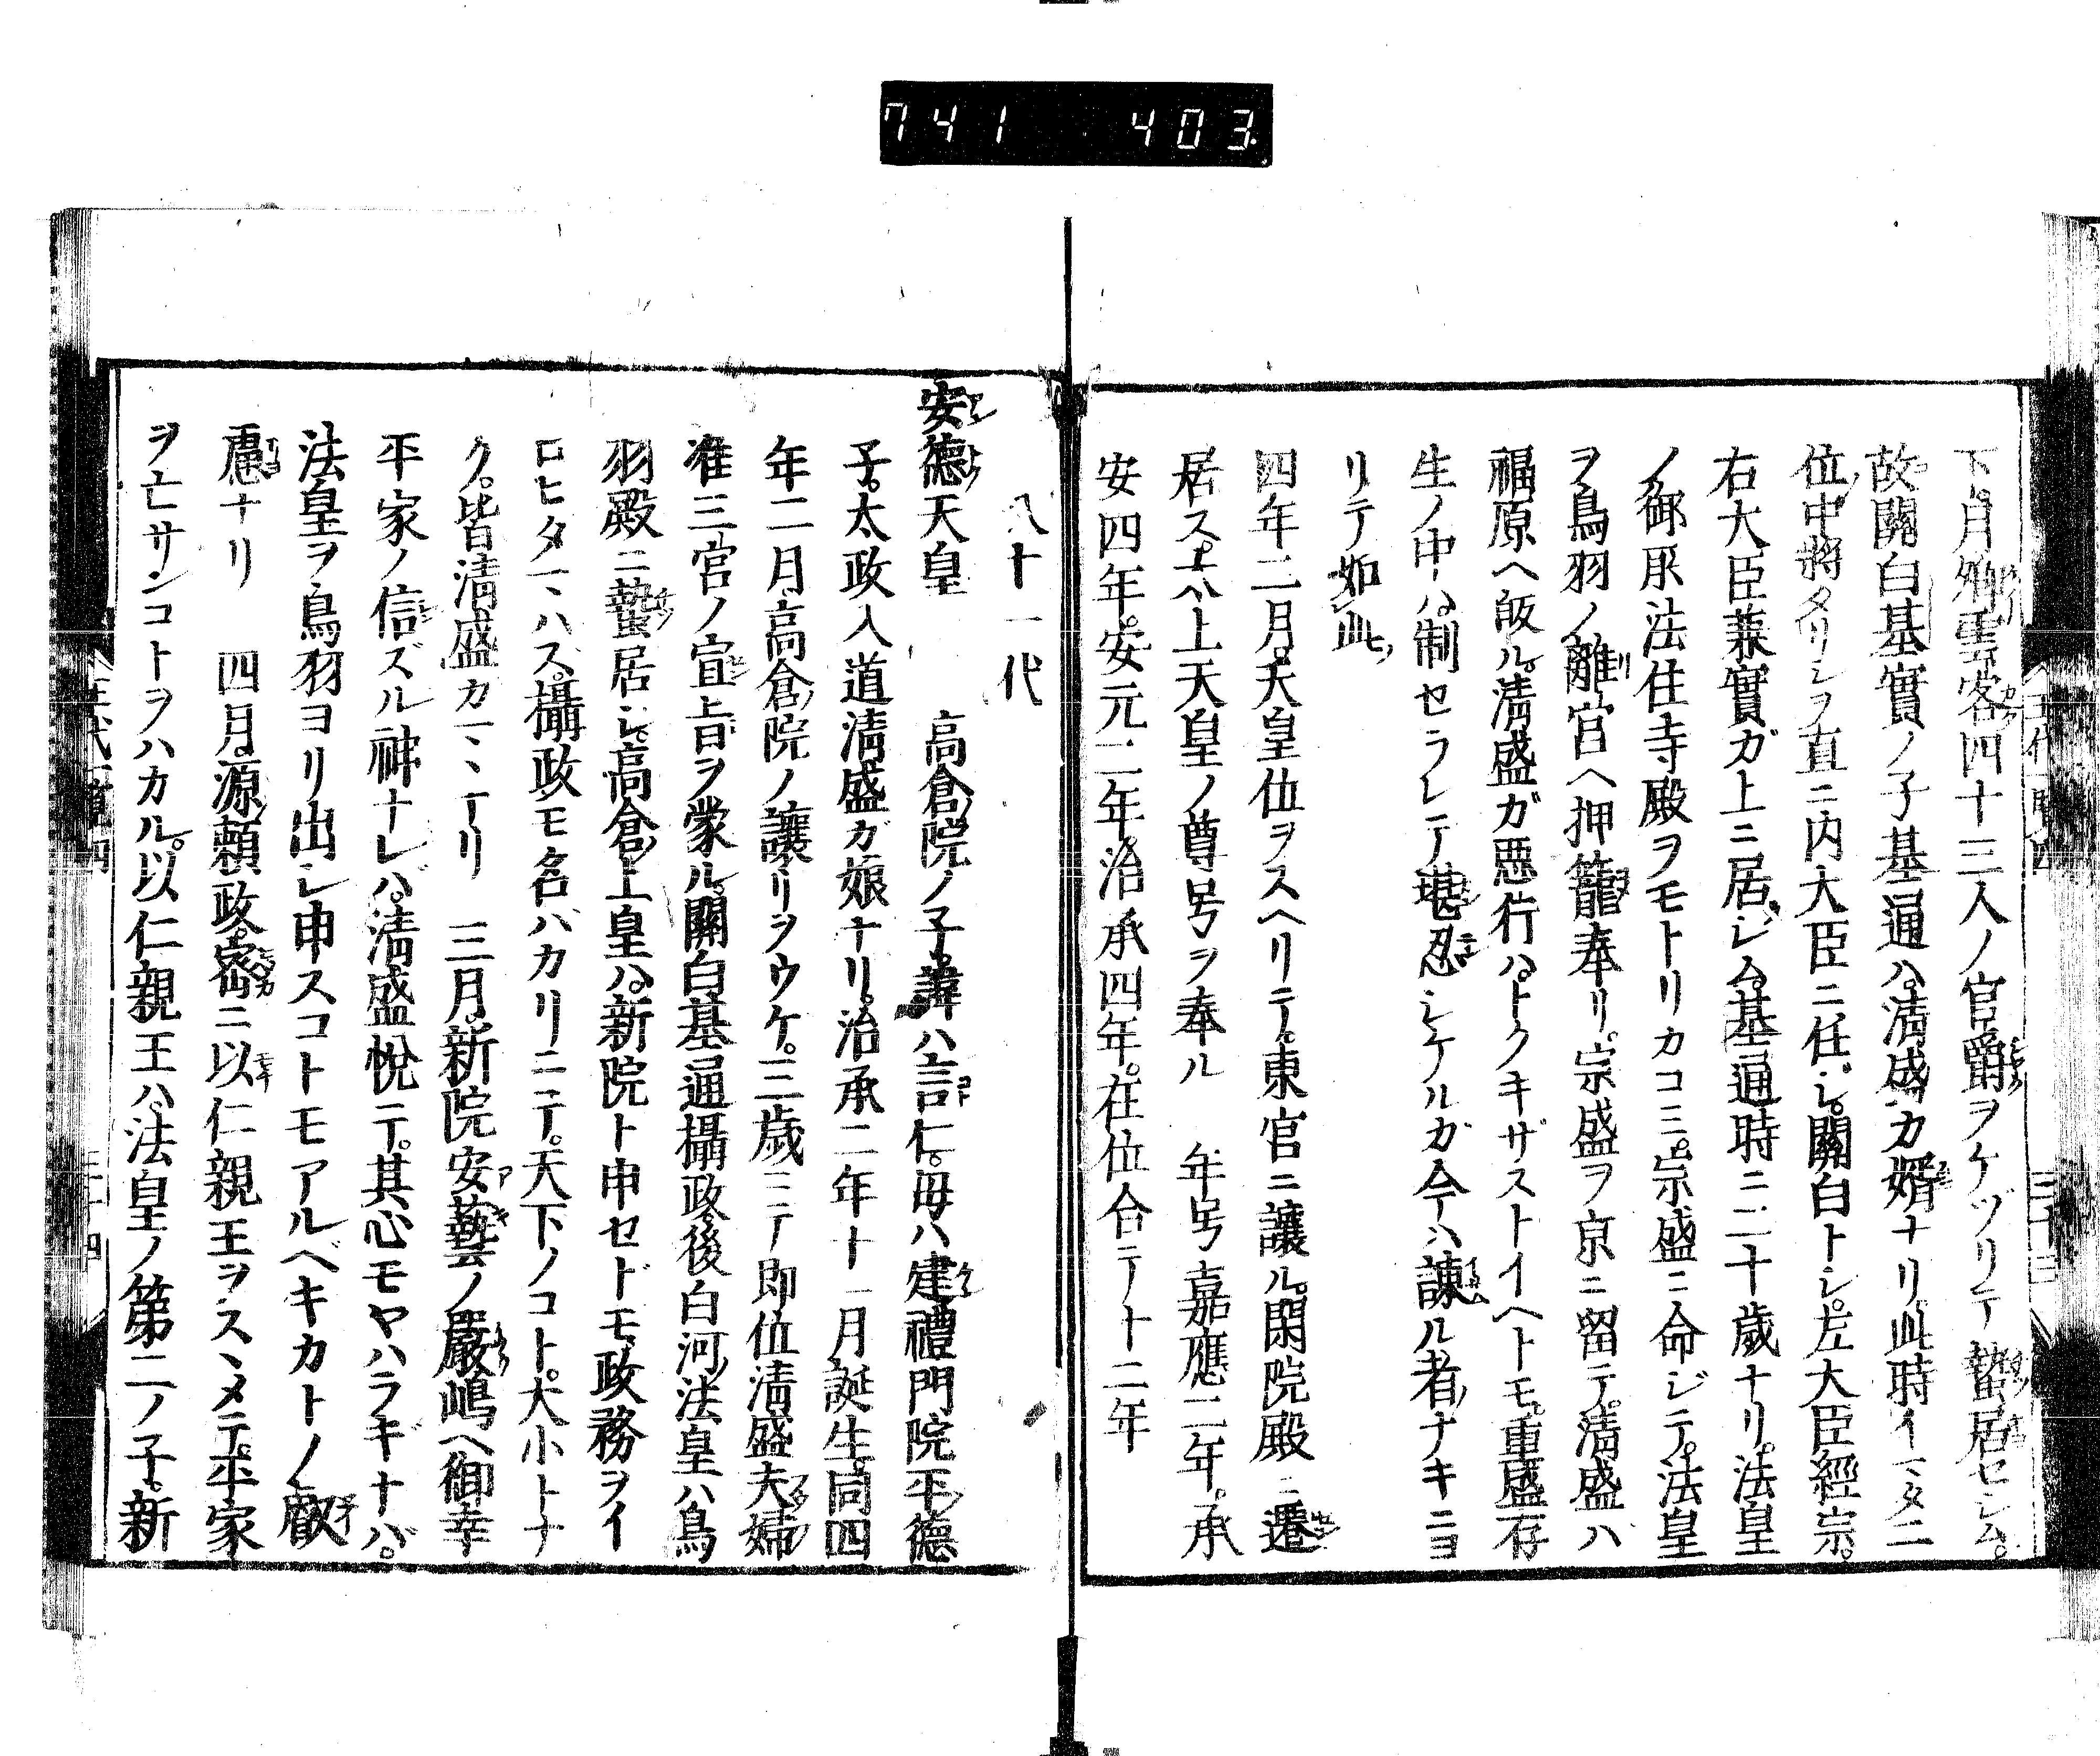 741 403
下。月卿雲客四十三人ノ官爵ヲケヅリテ蟄居セシム。
故關白基實ノ子基通ハ。清盛カ婿ナリ。此時イマタ二
位中將タリシヲ直ニ内大臣ニ任シ。關白トシ。左大臣經宗。
右大臣兼實ガ上ニ居シム。基通時ニ二十歳ナリ。法皇
ノ御所法住寺殿ヲモトリカコミ。宗盛ニ命ジテ。法皇
ヲ鳥羽ノ離宮ヘ押籠奉リ。宗盛ヲ京ニ留テ。清盛ハ
福原ヘ皈ル。清盛ガ惡行ハ。トクキザストイヘトモ。重盛存
生ノ中ハ。制セラレテ堪忍シケルカ今ハ諫ル者ナキニヨ
リテ如此
四年二月。天皇位ヲスヘリテ。東宮ニ讓ル。閑院殿ニ遷
居ス。太上天皇ノ尊号ヲ奉ル 年号嘉應二年。承
安四年。安元二年治承四年。在位合テ十二年
八十一代
安德天皇 高倉院ノ子。諱ハ言仁。母ハ建禮門院平德
子。太政入道清盛カ娘ナリ。治承二年十一月誕生。同四
年二月。高倉院ノ讓リヲウケ。三歳ニテ即位清盛夫婦
准三宮ノ宣旨ヲ蒙ル。關白基通攝政。後白河法皇ハ鳥
羽殿ニ蟄居シ。高倉上皇ハ。新院ト申セドモ。政務ヲイ
ロヒタマハス。攝政モ名バカリニテ。天下ノコト。大小トナ
ク。皆清盛カマヽナリ 三月。新院安藝ノ嚴嶋ヘ御幸
平家ノ信ズル神ナレバ。清盛悅テ。其心モヤハラギナバ。
法皇ヲ鳥羽ヨリ出シ申スコトモアルベキカトノ叡
慮ナリ 四月。源頼政。密ニ以仁親王ヲスヽメテ。平家
ヲ亡サンコトヲハカル。以仁親王ハ。法皇ノ第二ノ子。新